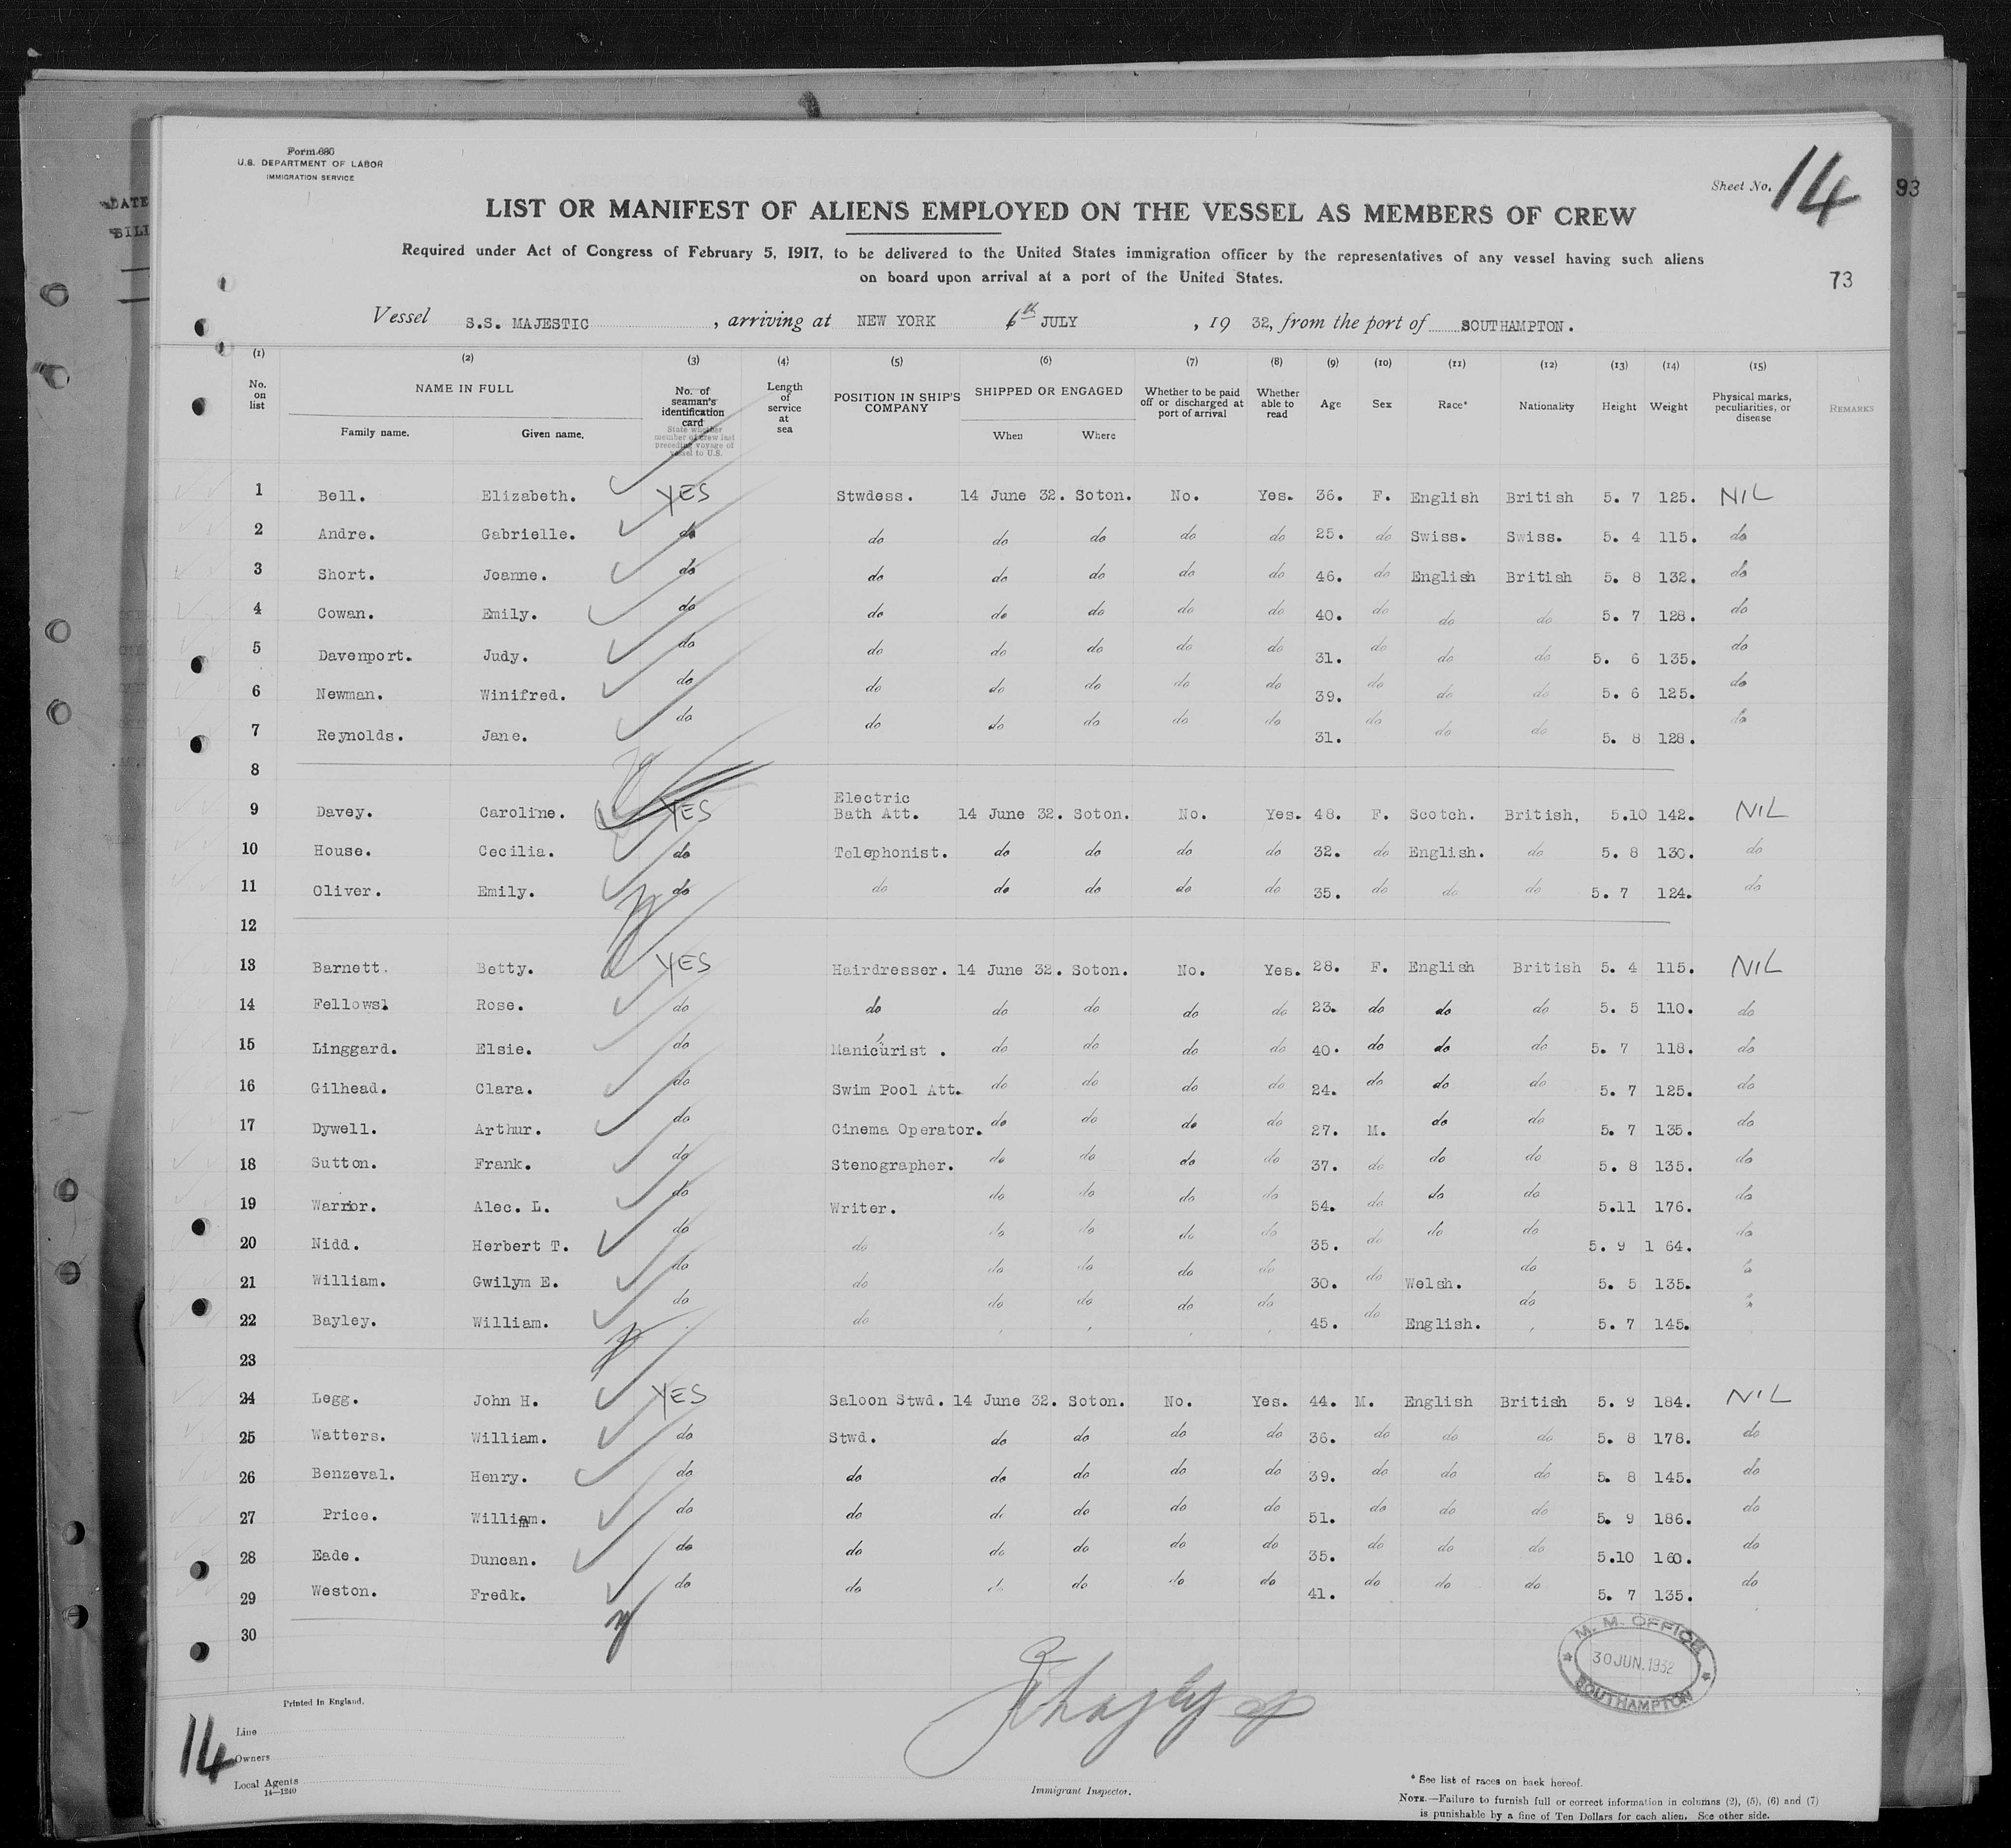 Form 680
U.S. DEPARTMENT OF LABOR
IMMIGRATION SERVICE
Sheet No. 14
93
LIST OR MANIFEST OF ALIENS EMPLOYED ON THE VESSEL AS MEMBERS OF CREW
Required under Act of Congress of February 5, 1917, to be delivered to the United States immigration officer by the representatives of any vessel having such aliens
on board upon arrival at a port of the United States.
73
Vessel S.S. MAJESTIC, arriving at NEW YORK 6th JULY, 19 32, from the port of SOUTHAMPTON.
(1) (2) (3) (4) (5) (6) (7) (8) (9) (10) (11) (12) (13) (14) (15)
No. on list NAME IN FULL Family name. Given name. No. of seaman's identification card State whether member of crew last preceding voyage of vessel to U.S. Length of service at sea POSITION IN SHIP'S COMPANY SHIPPED OR ENGAGED When Where Whether to be paid off or discharged at port of arrival Whether able to read Age Sex Race* Nationality Height Weight Physical marks, peculiarities, or disease REMARKS
1 Bell. Elizabeth. YES Stwdess. 14 June 32. Soton. No. Yes. 36. F. English British 5. 7 125. NIL
2 Andre. Gabrielle. do do do do do do 25. do Swiss. Swiss. 5. 4 115. do
3 Short. Jeanne. do do do do do do 46. do English British 5. 8 132. do
4 Cowan. Emily. do do do do do do 40. do do do 5. 7 128. do
5 Davenport. Judy. do do do do do do 31. do do do 5. 6 135. do
6 Newman. Winifred. do do do do do do 39. do do do 5. 6 125. do
7 Reynolds. Jane. do do do do do do 31. do do do 5. 8 128. do
8
9 Davey. Caroline. YES Electric Bath Att. 14 June 32. Soton. No. Yes. 48. F. Scotch. British, 5.10 142. NIL
10 House. Cecilia. do Telephonist. do do do do 32. do English. do 5. 8 130. do
11 Oliver. Emily. do do do do do do 35. do do do 5. 7 124. do
12
13 Barnett. Betty. YES Hairdresser. 14 June 32. Soton. No. Yes. 28. F. English British 5. 4 115. NIL
14 Fellows. Rose. do do do do do do 23. do do do 5. 5 110. do
15 Linggard. Elsie. do Manicurist . do do do do 40. do do do 5. 7 118. do
16 Gilhead. Clara. do Swim Pool Att. do do do do 24. do do do 5. 7 125. do
17 Dywell. Arthur. do Cinema Operator. do do do do 27. M. do do 5. 7 135. do
18 Sutton. Frank. do Stenographer. do do do do 37. do do do 5. 8 135. do
19 Warrior. Alec. L. do Writer. do do do do 54. do do do 5.11 176. do
20 Nidd. Herbert T. do do do do do do 35. do do do 5. 9 1 64. do
21 William. Gwilym E. do do do do do do 30. do Welsh. do 5. 5 135.
22 Bayley. William. do do do do do do 45. do English. do 5. 7 145.
23
24 Legg. John H. YES Saloon Stwd. 14 June 32. Soton. No. Yes. 44. M. English British 5. 9 184. NIL
25 Watters. William. do Stwd. do do do do 36. do do do 5. 8 178. do
26 Benzeval. Henry. do do do do do do 39. do do do 5. 8 145. do
27 Price. William. do do do do do do 51. do do do 5. 9 186. do
28 Eade. Duncan. do do do do do do 35. do do do 5.10 160. do
29 Weston. Fredk. do do do do do do 41. do do do 5. 7 135. do
30
M. M. OFFICE
30 JUN. 1932
SOUTHAMPTON
Printed in England.
14
Line
Owners
Local Agents
14—1240
Immigrant Inspector.
* See list of races on back hereof.
NOTE.—Failure to furnish full or correct information in columns (2), (5), (6) and (7)
is punishable by a fine of Ten Dollars for each alien. See other side.